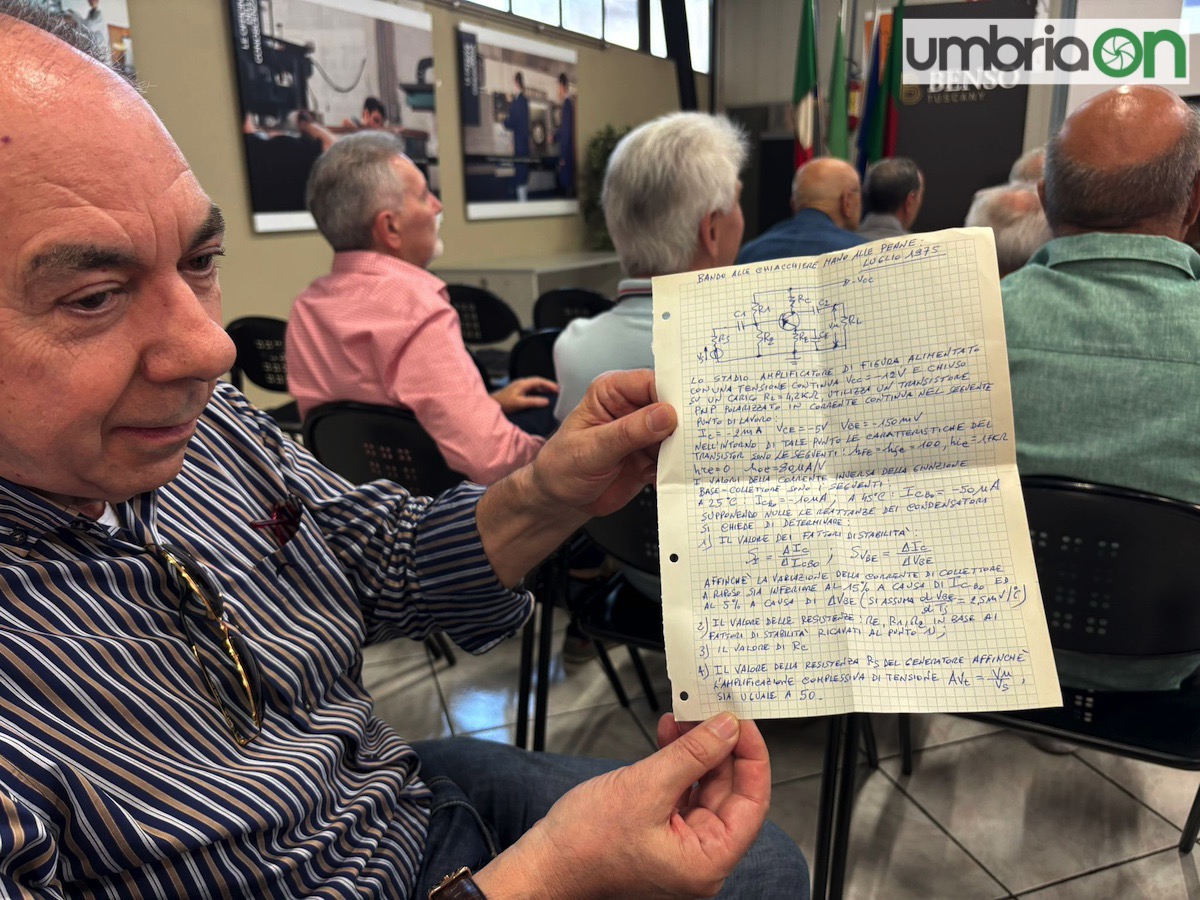 umbriaON
BENSO
TUSCANY
BANDO ALLE CHIACCHIERE MANO ALLE PENNE:
LUGLIO 1975
-VCC
R1 RC C2
C1
RS R2 RE CE Vu RL
LO STADIO AMPLIFICATORE DI FIGURA ALIMENTATO
CON UNA TENSIONE CONTINUA VCC=-12V E CHIUSO
SU UN CARICO RL=1,2KΩ, UTILIZZA UN TRANSISTORE
PNP POLARIZZATO IN CORRENTE CONTINUA NEL SEGUENTE
PUNTO DI LAVORO
IC=-2mA VCE=-5V VBE=-150mV
NELL'INTORNO DI TALE PUNTO LE CARATTERISTICHE DEL
TRANSISTOR SONO LE SEGUENTI: hFE=hfe=100, hie=1,7KΩ
hre=0 hoe=80µA/V
I VALORI DELLA CORRENTE INVERSA DELLA GIUNZIONE
BASE-COLLETTORE SONO I SEGUENTI
A 25°C: ICBO=-10µA, A 45°C: ICBO=-50µA
SUPPONENDO NULLE LE REATTANZE DEI CONDENSATORI
SI CHIEDE DI DETERMINARE:
1) IL VALORE DEI FATTORI DI STABILITÀ
SI = ΔIC/ΔICBO ; SVBE = ΔIC/ΔVBE
AFFINCHÈ LA VARIAZIONE DELLA CORRENTE DI COLLETTORE
A RIPOSO SIA INFERIORE AL 15% A CAUSA DI ICBO ED
AL 5% A CAUSA DI ΔVBE (SI ASSUMA dVBE/dTj = 2,5mV/°C)
2) IL VALORE DELLE RESISTENZE: RE, R1, R2 IN BASE AI
FATTORI DI STABILITÀ RICAVATI AL PUNTO 1);
3) IL VALORE DI RC
4) IL VALORE DELLA RESISTENZA RS DEL GENERATORE AFFINCHÈ
L'AMPLIFICAZIONE COMPLESSIVA DI TENSIONE AVt = Vu/VS,
SIA UGUALE A 50.